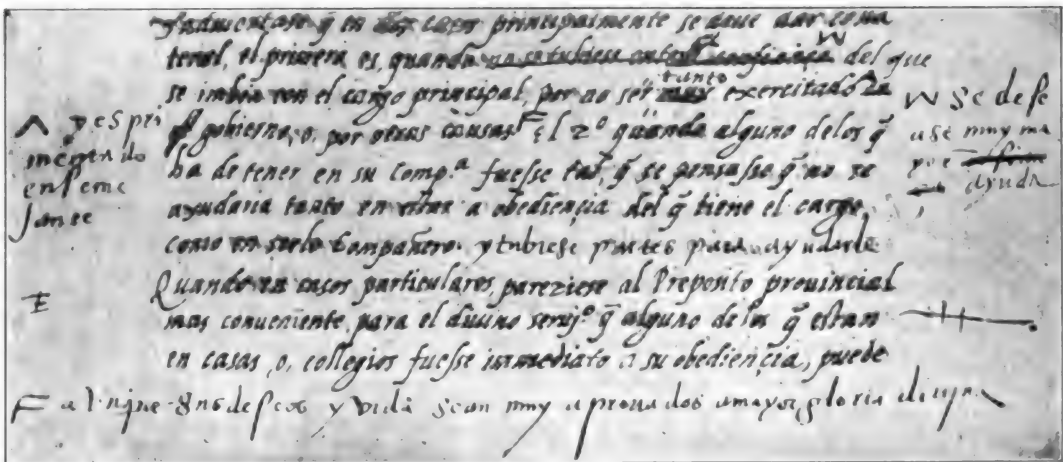 en dos casos principalmente se deue dar cola
teral, el primero es, quando del que
tanto
se imbia con el cargo principal, por no ser muy exercitado en
gobierno, o, por otras causas El 2º quando alguno delos q̃
ha de tener en su comp.ª fuesse tal, q̃ se pensasse q̃ no se
ayudaria tanto en estar a obediençia del q̃ tiene el cargo,
como en serle compañero. y tubiese partes para ayudarle
Quando en casos particulares, pareziese al Preposito prouincial
mas conueniente, para el diuino seruj.º q̃ alguno delos q̃ estan
en casas, o, collegios fuesse immediato a su obediençia, puede
y espri
mentado
en seme
jante
se dese
ase muy ma
yor
ayuda
F aunque sus deseos y vida sean muy aprouados a mayor gloria diujna